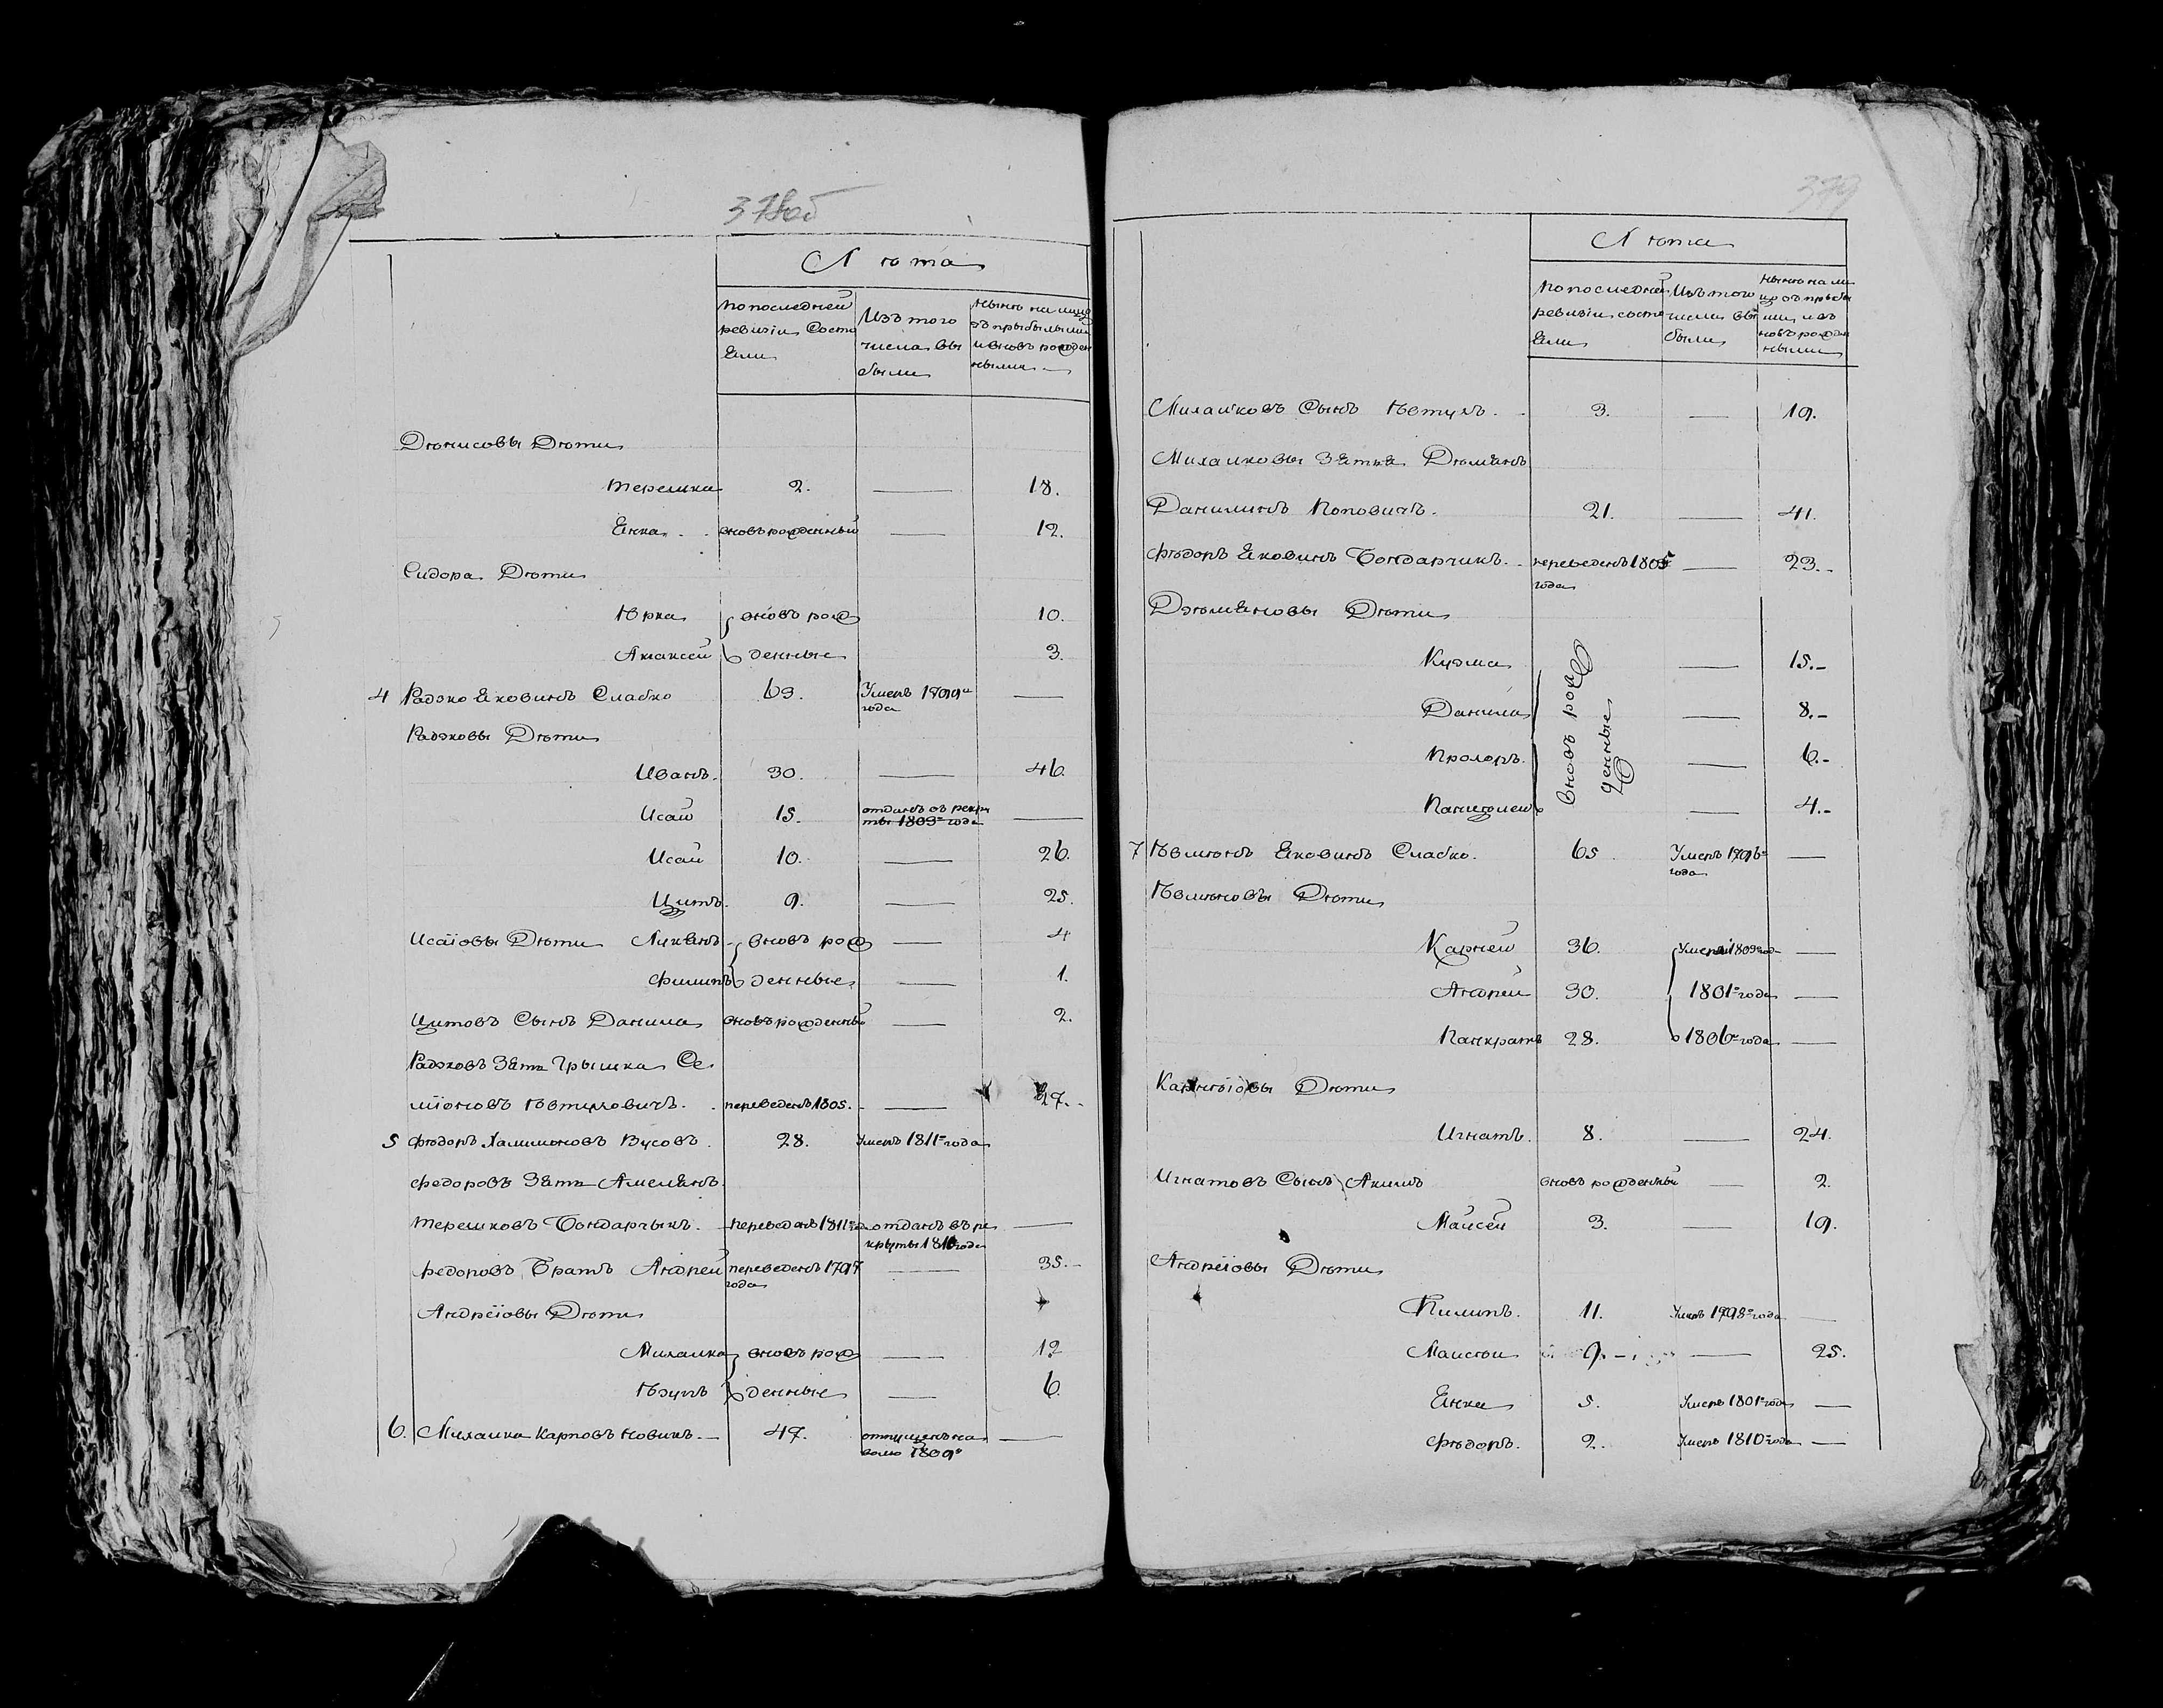 378об
Лѣта
Попоследней ревизіи Состо яли
Изъ того числа вы были
Нынѣ на лицо зъ прыбылыми и вновь рожден ными
Дѣнисовы Дѣти
Терешка 2. — 18.
Янка вновь рожденный — 12.
Сидора Дѣти
Юрка вновь рож 10.
Алаксей денные 3.
4 Радзко Яковинъ Слабко 63. Умеръ 1799го года —
Радзковы Дѣти
Иванъ. 30. — 46.
Исай 15. отданъ въ рекру ты 1803го года —
Исай 10. — 26.
Цитъ. 9. — 25.
Исаіовы Дѣти Лукянъ вновь рож — 4
Филипъ денные — 1.
Цитовъ Сынъ Данила вновь рожденны — 2.
Радзковъ Зять Грышка Се
міоновъ переведенъ 1805. — 27.
5 Фѣдоръ Халимоновъ Вусовъ. 28. Умеръ 1811го года
Федоровъ Зять Амелянъ
Терешковъ Бондарчыкъ. переведенъ 1811го отданъ въ ре круты года —
Федоровъ Братъ Андрей переведенъ 1797 года — 35.
Андреіовы Дѣти
Михалка вновь рож — 12
денные — 6.
6. Михалка Карповъ Новикъ. 47. отпущенъ на волю 1809го —
379
Лѣта
Попоследней ревизіи состо яли
Изъ того числа вы были
Нынѣ на ли цо зъ прыбы ми изъ новъ рожден ными
Михалковъ Сынъ 3. — 19.
Михалковы Зятья Дѣмянъ
Данилинъ Поповичъ. 21. — 41.
Фѣдоръ Яковинъ Бондарчикъ. переведенъ 1805 года — 23.
Дземяновы Дѣти
Кузма — 15.
Данила — 8.
Прохоръ. — 6.
— 4.
вновь рож денные
7 Яковинъ Слабко. 65. Умеръ 1796го года —
Дѣти
Карней 36. Умеръ 1809 год —
Андрей 30. 1801го года —
Панкратъ 28. 1806го года —
Карнѣіовы Дѣти
Игнатъ. 8. — 24.
Игнатовъ Сынъ Акимъ вновь рожденный — 2.
Майсей 3. — 19.
Андреіовы Дѣти
Пилипъ. 11. Умеръ 1798го года —
Маисѣи 9. — 25.
Янка 5. Умеръ 1801го года —
Фѣдоръ. 2. Умеръ 1810го года —